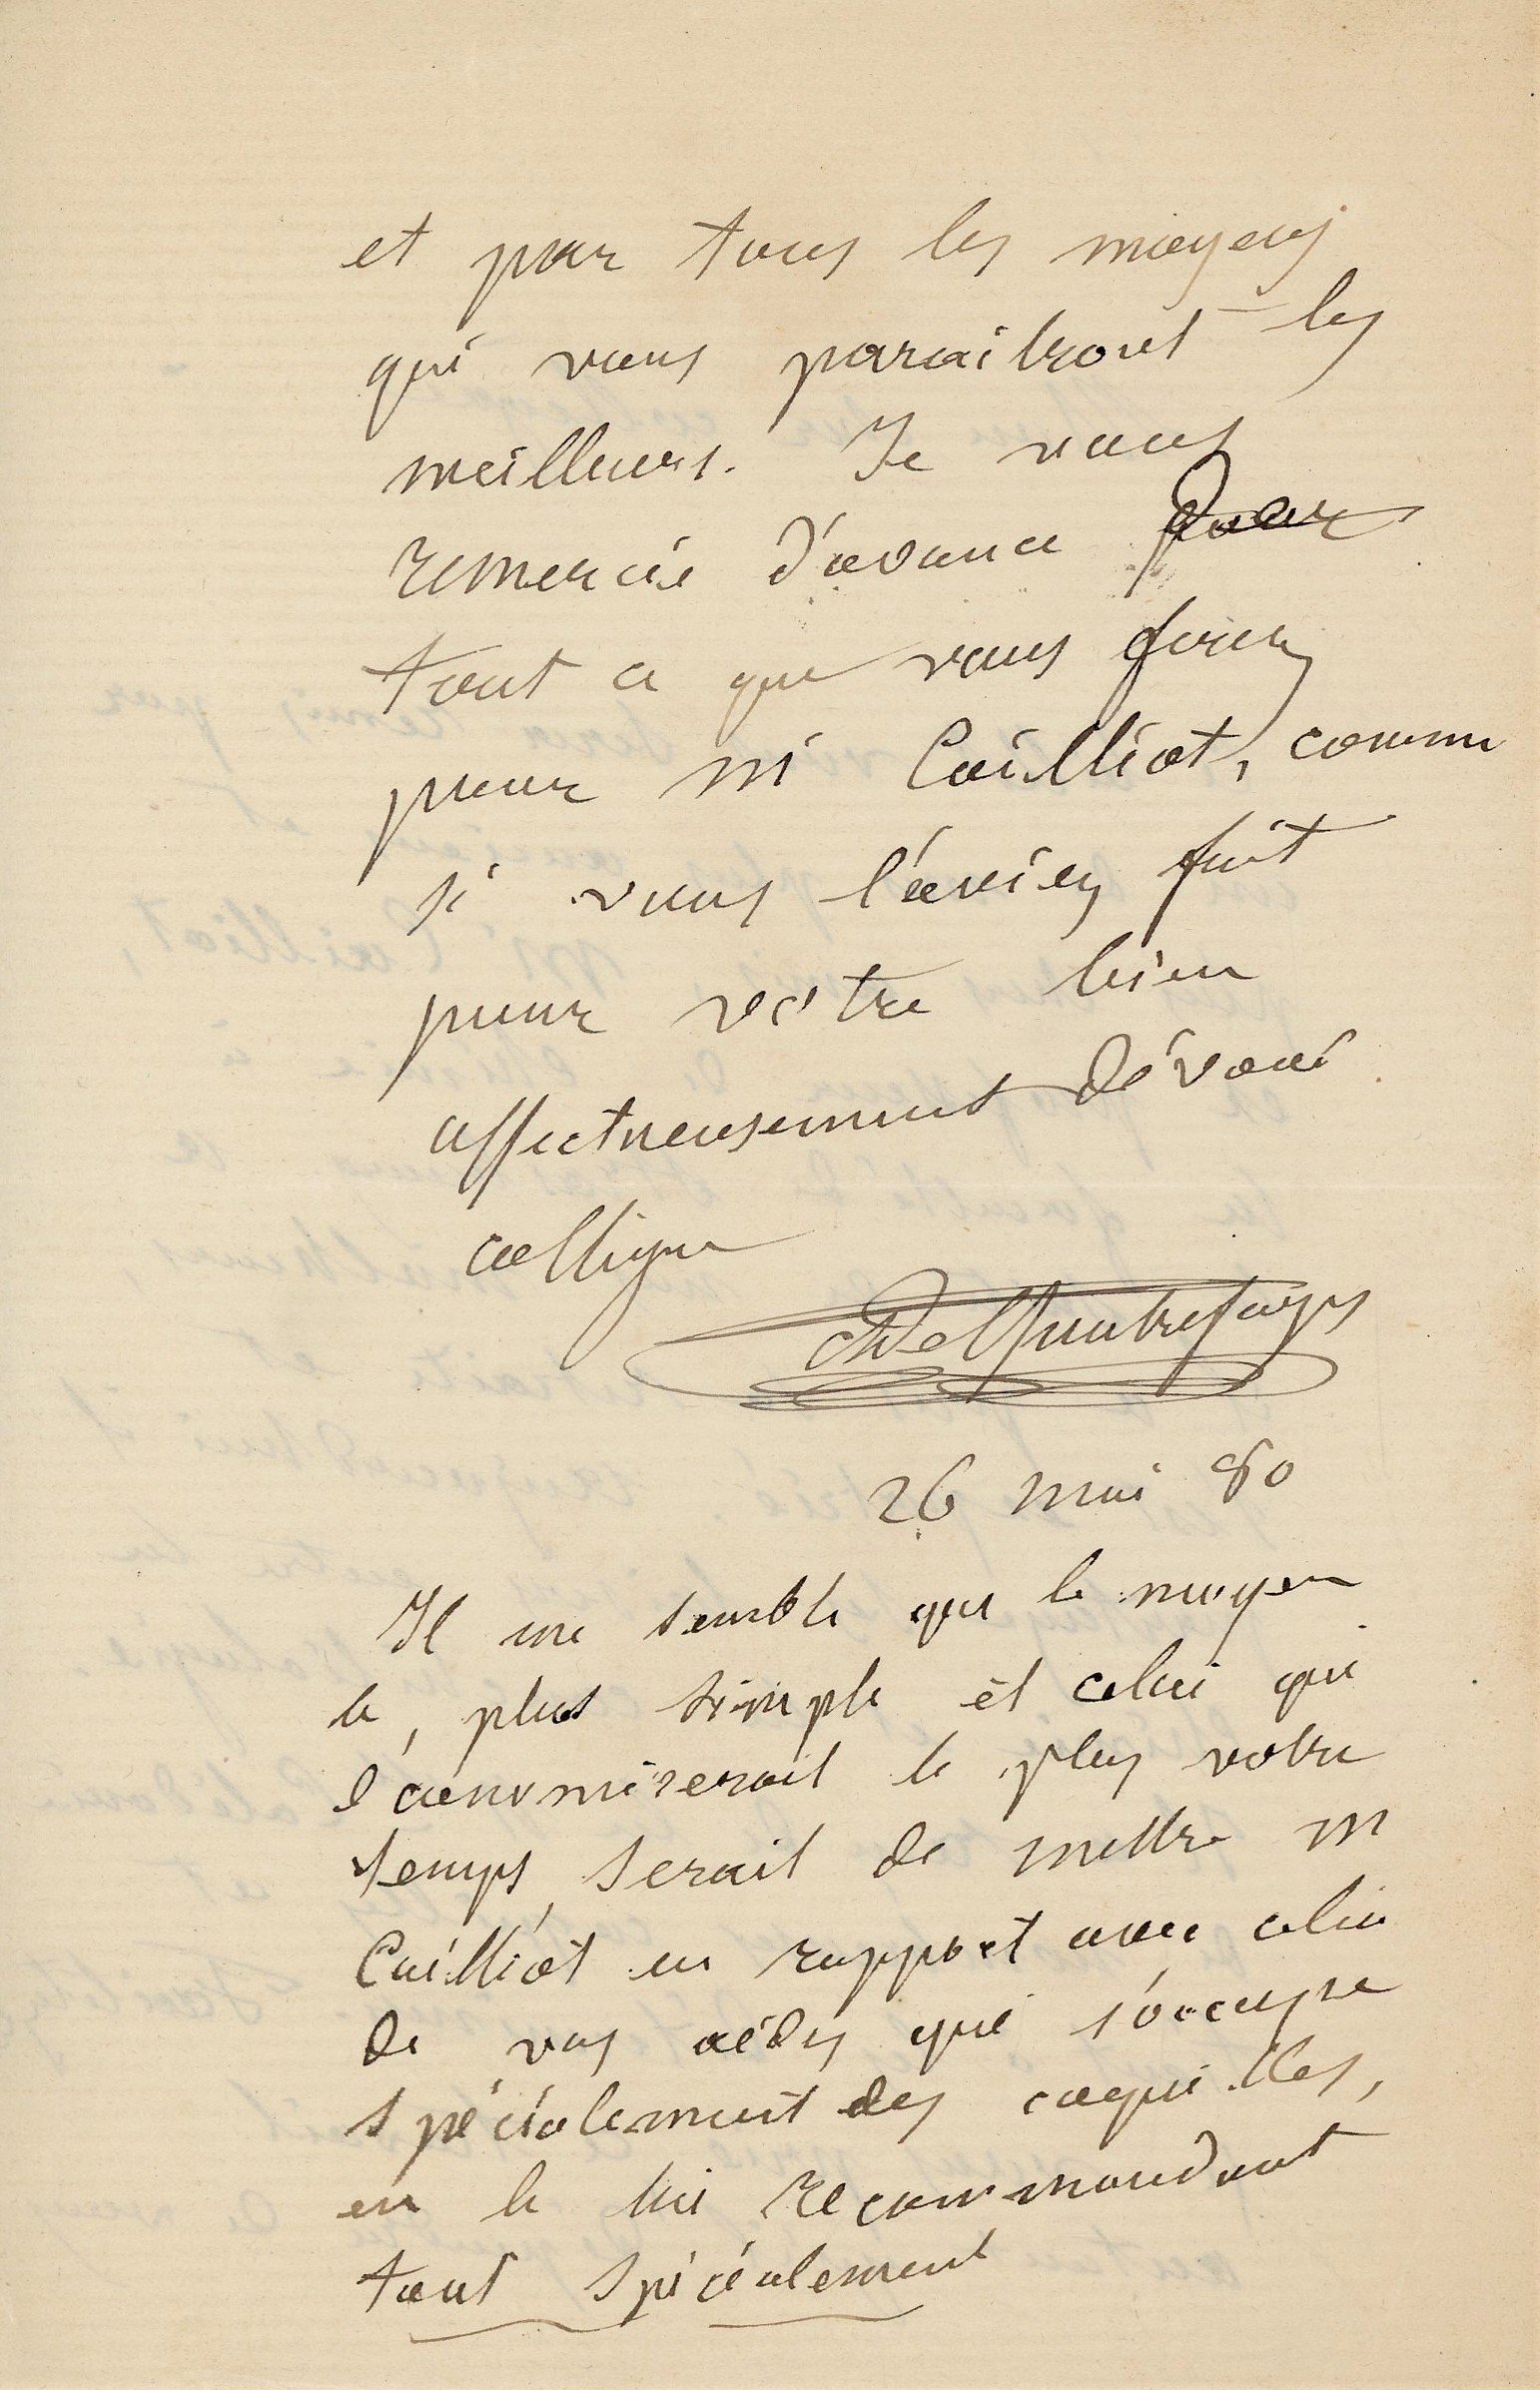 et par tous les moyens
qui vous paraitront les
meilleurs. Je vous
remercie d'avance pour
tout ce que vous ferez
pour Mr Cailliot, comme
si vous l'aviez fait
pour votre bien
affectueusement dévoué
collègue
A de Quatrefages
26 mai 80
Il me semble que le moyen
le plus simple et celui qui
économiserait le plus votre
temps serait de mettre M
Cailliot en rapport avec celui
de vos aides qui s'occupe
spécialement des coquilles,
en le lui recommandant
tout spécialement